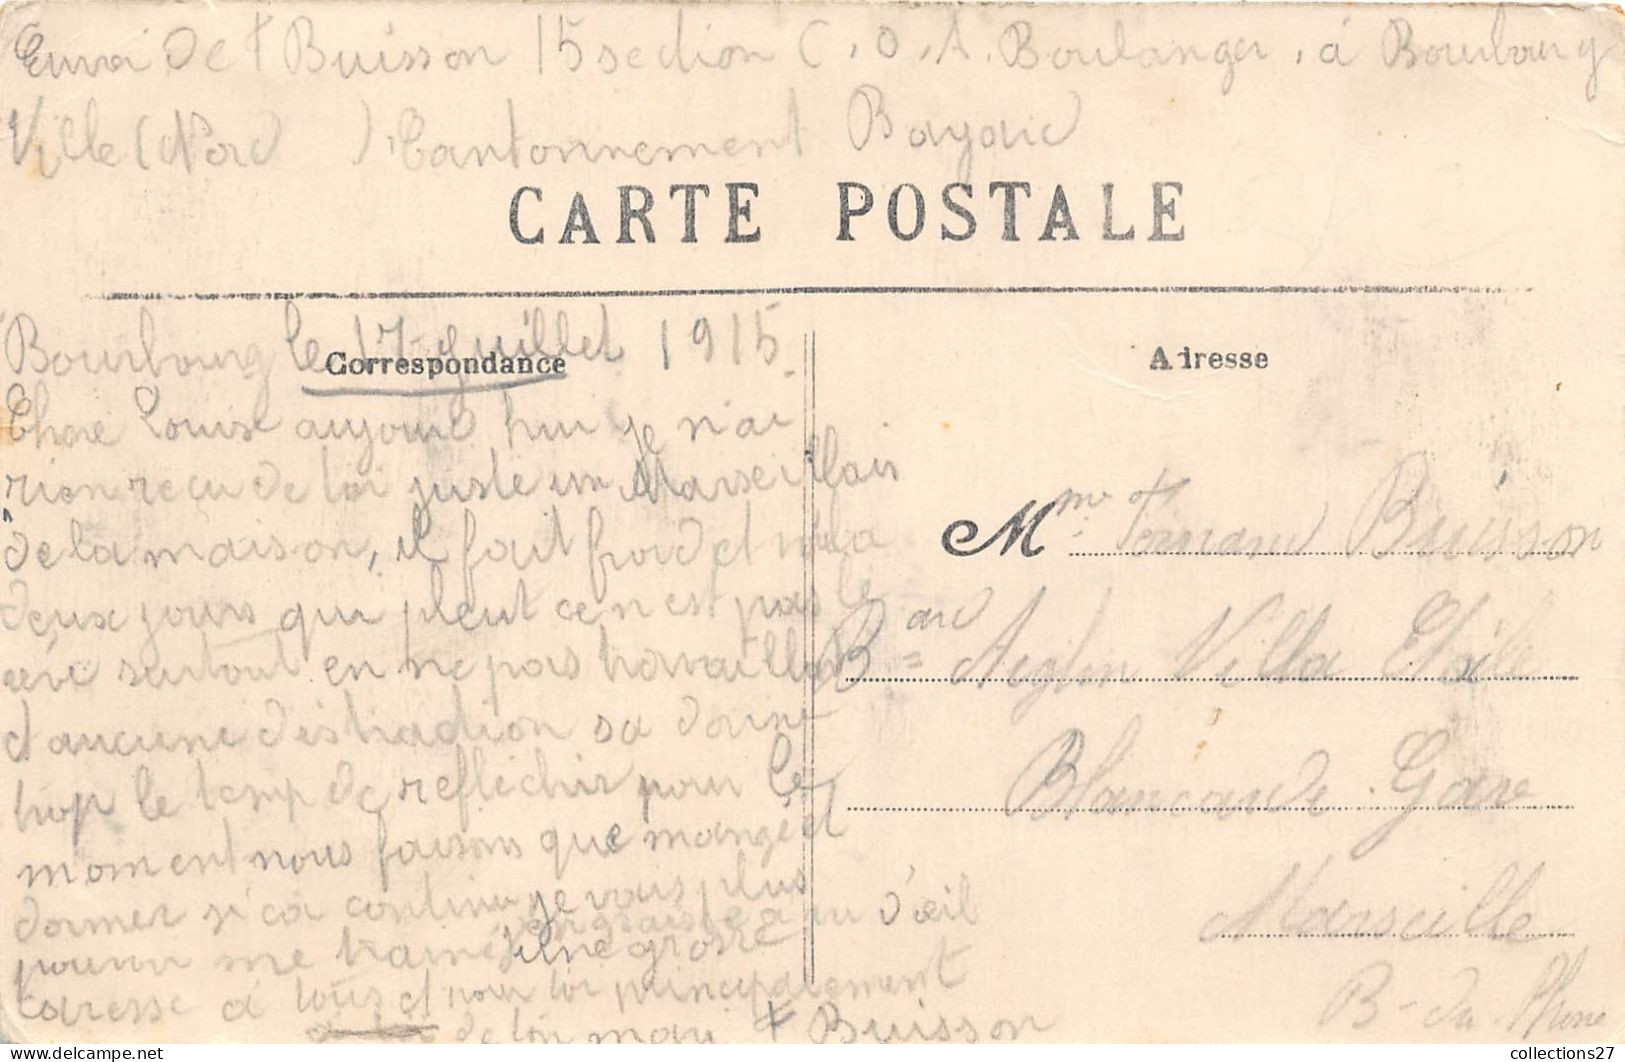 Envoi De F Buisson 15 section C.O.A. Boulanger, à Bourbourg
Ville (Nord ) Cantonnement Bayard
CARTE POSTALE
Correspondance
Adresse
Bourbourg le 17 Juillet 1915.
Chere Louise aujourd hui je n'ai
rien reçu de toi juste un Marseillais
de la maison, il fait froid et voila
deux jours qui pleut ce n'est pas le
rêve surtout en ne pas travaillant
et aucune distraction sa donne
trop le temp de reflechir pour le
moment nous faisons que mangé et
dormer si ca continu je vais plus
pouvoir me trainé j'engraisse a vu d'œil
une grosse
caresse a tous et pour toi principalement
de ton mari F Buisson
Mme F Fernand Buisson
Bard Aiglon Villa Etoile
Blancarde Gare
Marseille
B-du Rhone
collections27